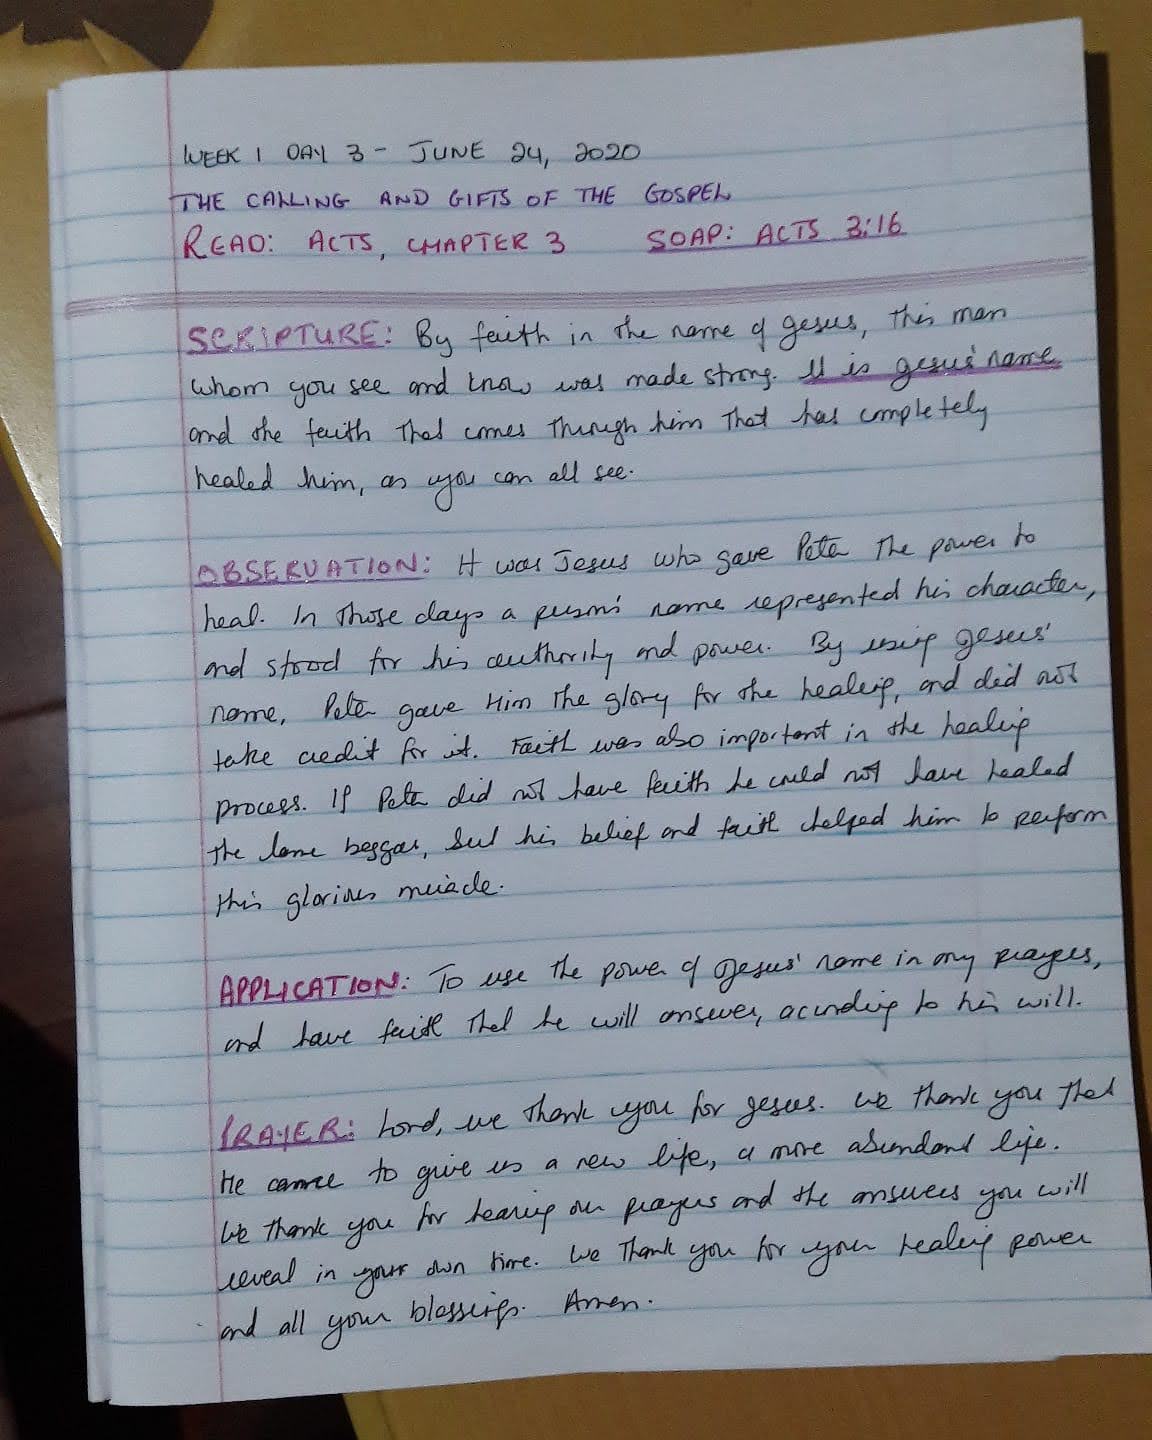 WEEK 1 DAY 3 - JUNE 24, 2020
THE CALLING AND GIFTS OF THE GOSPEL
READ: ACTS, CHAPTER 3 SOAP: ACTS 3:16
SCRIPTURE: By faith in the name of Jesus, this man
whom you see and know was made strong. It is Jesus' name
and the faith that comes through him that has completely
healed him, as you can all see.
OBSERVATION: It was Jesus who gave Peter the power to
heal. In those days a person's name represented his character,
and stood for his authority and power. By using Jesus'
name, Peter gave Him the glory for the healing, and did not
take credit for it. Faith was also important in the healing
process. If Peter did not have faith he could not have healed
the lame beggar, but his belief and faith helped him to perform
this glorious miracle.
APPLICATION: To use the power of Jesus' name in my prayers,
and have faith that he will answer, according to his will.
PRAYER: Lord, we thank you for Jesus. We thank you that
He came to give us a new life, a more abundant life.
We thank you for hearing our prayers and the answers you will
reveal in your own time. We thank you for your healing power
and all your blessings. Amen.